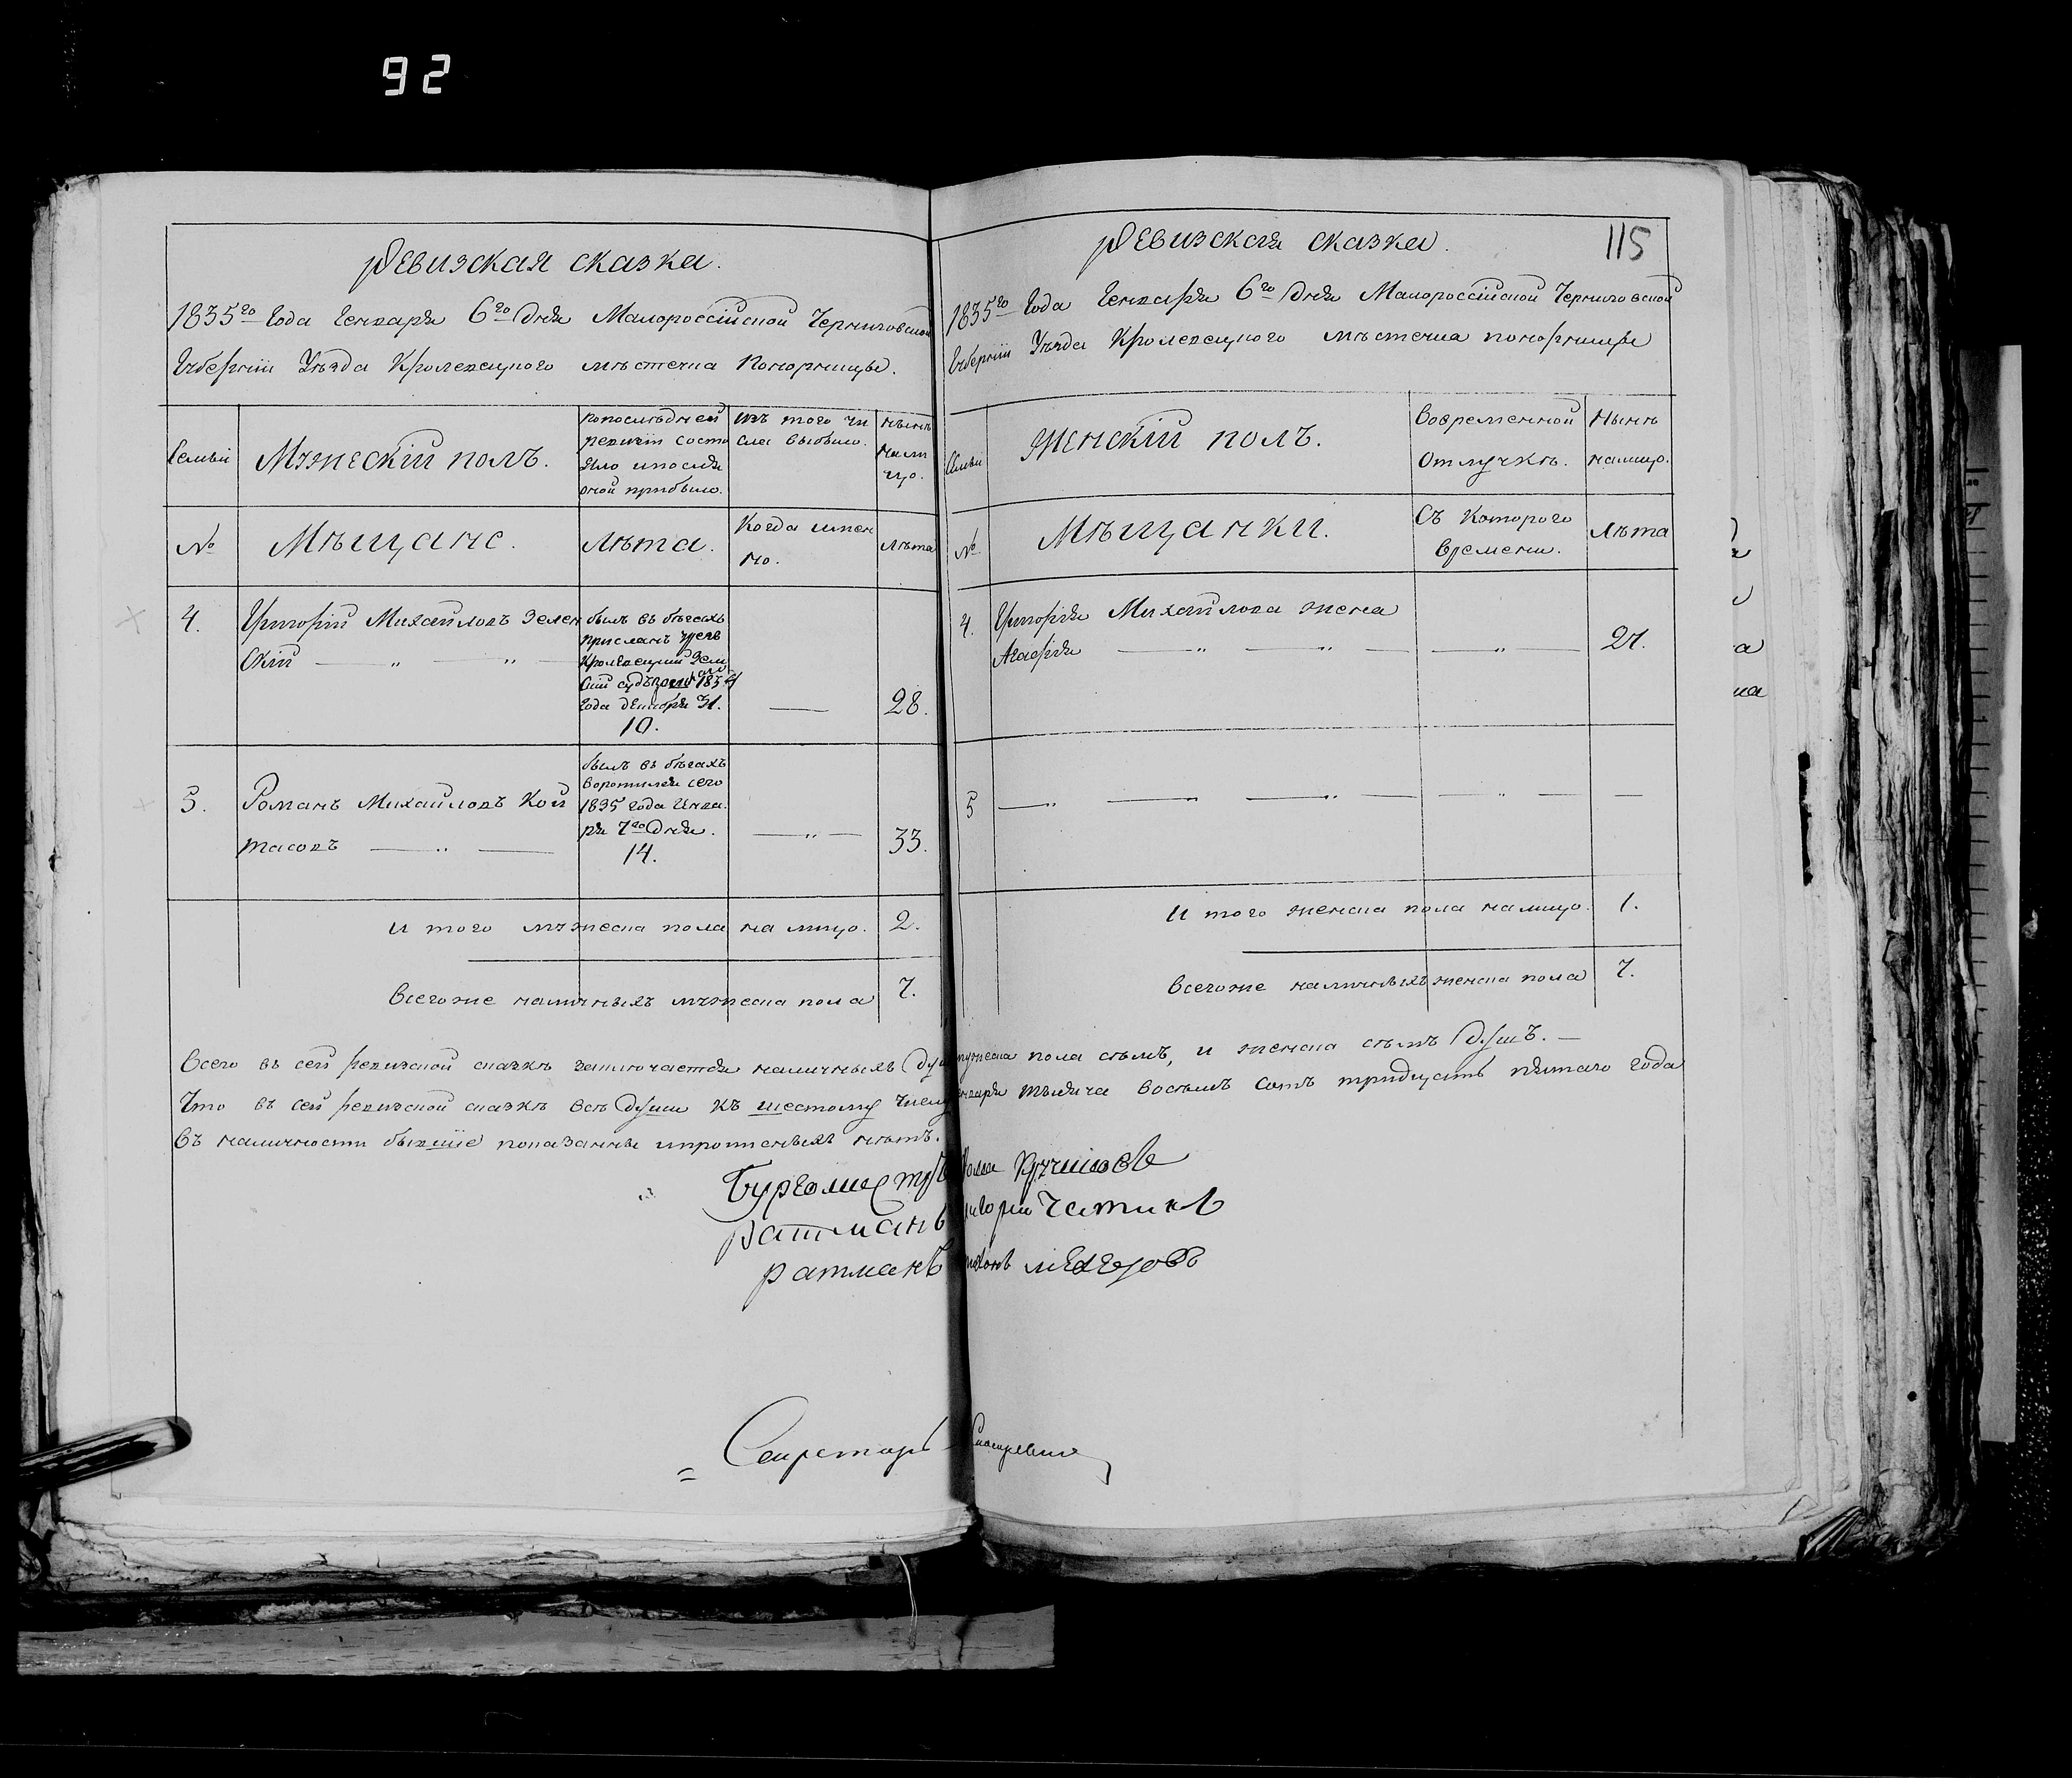 92
Ревизская сказка.
1835го Года Генваря 6го Дня Малороссійской Черниговской
Губерніи Уезда Кролевецкого мѣстечка Понорницы.
Семьи
Мужескій полъ.
По последней
ревизіи состо
яло и после
оной прибыло.
Изъ того чи
сла выбыло.
Нынѣ
на ли
цо.
№
Мѣщане.
Лѣта.
Когда имен
но.
Лѣта
4.
Григорій Михайловъ Зелен
скій — „ — „ —
былъ въ бѣгахъ
присланъ чрезъ
Кролевецкій Зем
скій судъ 1834
года декабря 31.
10.
—
28.
5.
Романъ Михайловъ Кой
тасовъ — „ —
былъ въ бѣгахъ
воротился сего
1835 года Генва
ря 7го Дня.
14.
— „ —
33.
И того мужеска пола на лицо. 2.
Всего же наличныхъ мужеска пола 7.
115
Ревизская сказка.
1835го Года Генваря 6го Дня Малороссійской Черниговской
Губерніи Уезда Кролевецкого мѣстечка Понорницы
Семьи
Женскій полъ.
Во временной
отлучкѣ.
Нынѣ
на лицо.
№
Мѣщанки.
Съ которого
времени.
Лѣта
4.
Григорія Михайлова жена
Агафія — „ — „ —
— „ —
27.
5
— „ — „ — „ —
— „ —
—
И того женска пола на лицо. 1.
Всего же наличныхъ женска пола 7.
Всего въ сей ревизской сказкѣ заключается наличныхъ душ мужеска пола семь, и женска семъ душъ. —
Что въ сей ревизской сказкѣ всѣ души къ шестому числу генваря тысяча восемь сотъ тридцать пятаго года
въ наличности бывшіе показаны и прописныхъ нѣтъ.
Бургомистръ
Ратманъ
Ратманъ
Секретарь